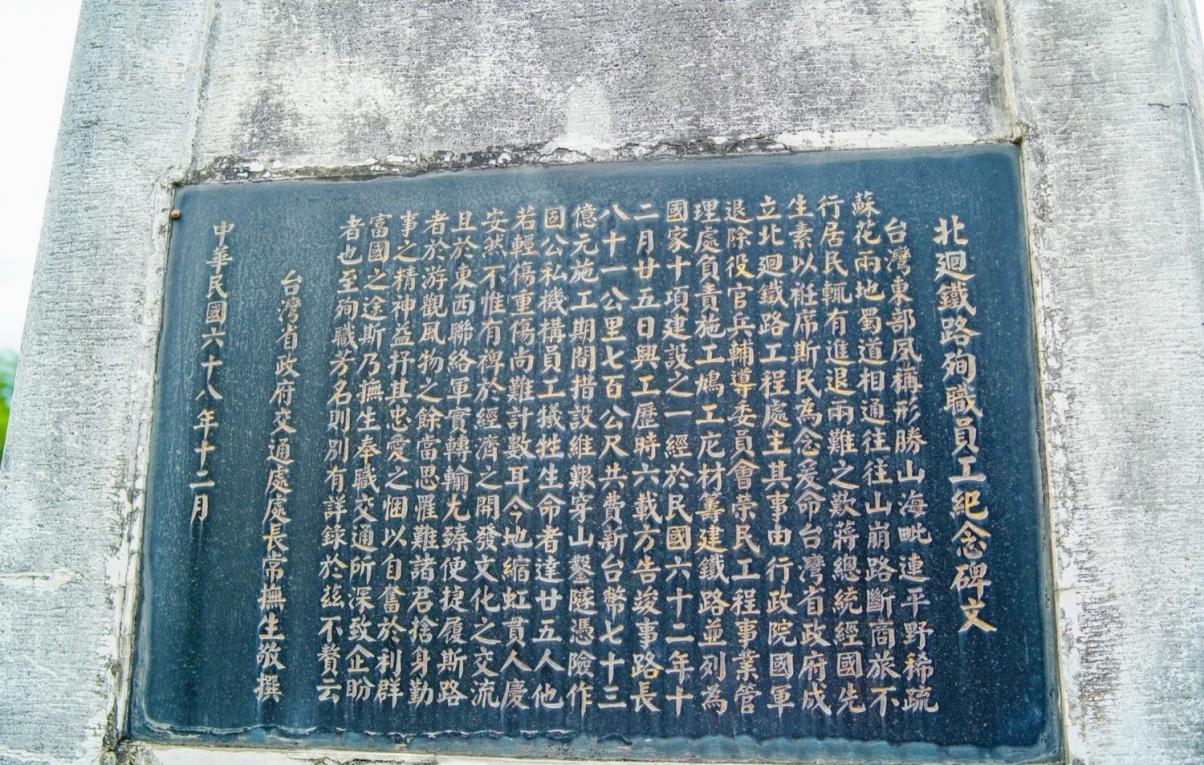 北迴鐵路殉職員工紀念碑文
台灣東部夙稱形勝山海毗連平野稀疏
蘇花兩地蜀道相通往往山崩路斷商旅不
行居民輒有進退兩難之歎蔣總統經國先
生素以袵席斯民為念爰命台灣省政府成
立北迴鐵路工程處主其事由行政院國軍
退除役官兵輔導委員會榮民工程事業管
理處負責施工鳩工庀材籌建鐵路並列為
國家十項建設之一經於民國六十二年十
二月廿五日興工歷時六載方告竣事路長
八十一公里七百公尺共費新台幣七十三
億元施工期間措設維艱穿山鑿隧憑險作
因公私機構員工犧牲生命者達廿五人他
若輕傷重傷尚難計數耳今地縮虹貫人慶
安然不惟有裨於經濟之開發文化之交流
且於東西聯絡軍實轉輸尤臻便捷履斯路
者於游觀風物之餘當思罹難諸君捨身勤
事之精神益抒其忠愛之悃以自奮於利群
富國之途斯乃撫生奉職交通所深致企盼
者也至殉職芳名則別有詳錄於茲不贅云
台灣省政府交通處處長常撫生敬撰
中華民國六十八年十二月